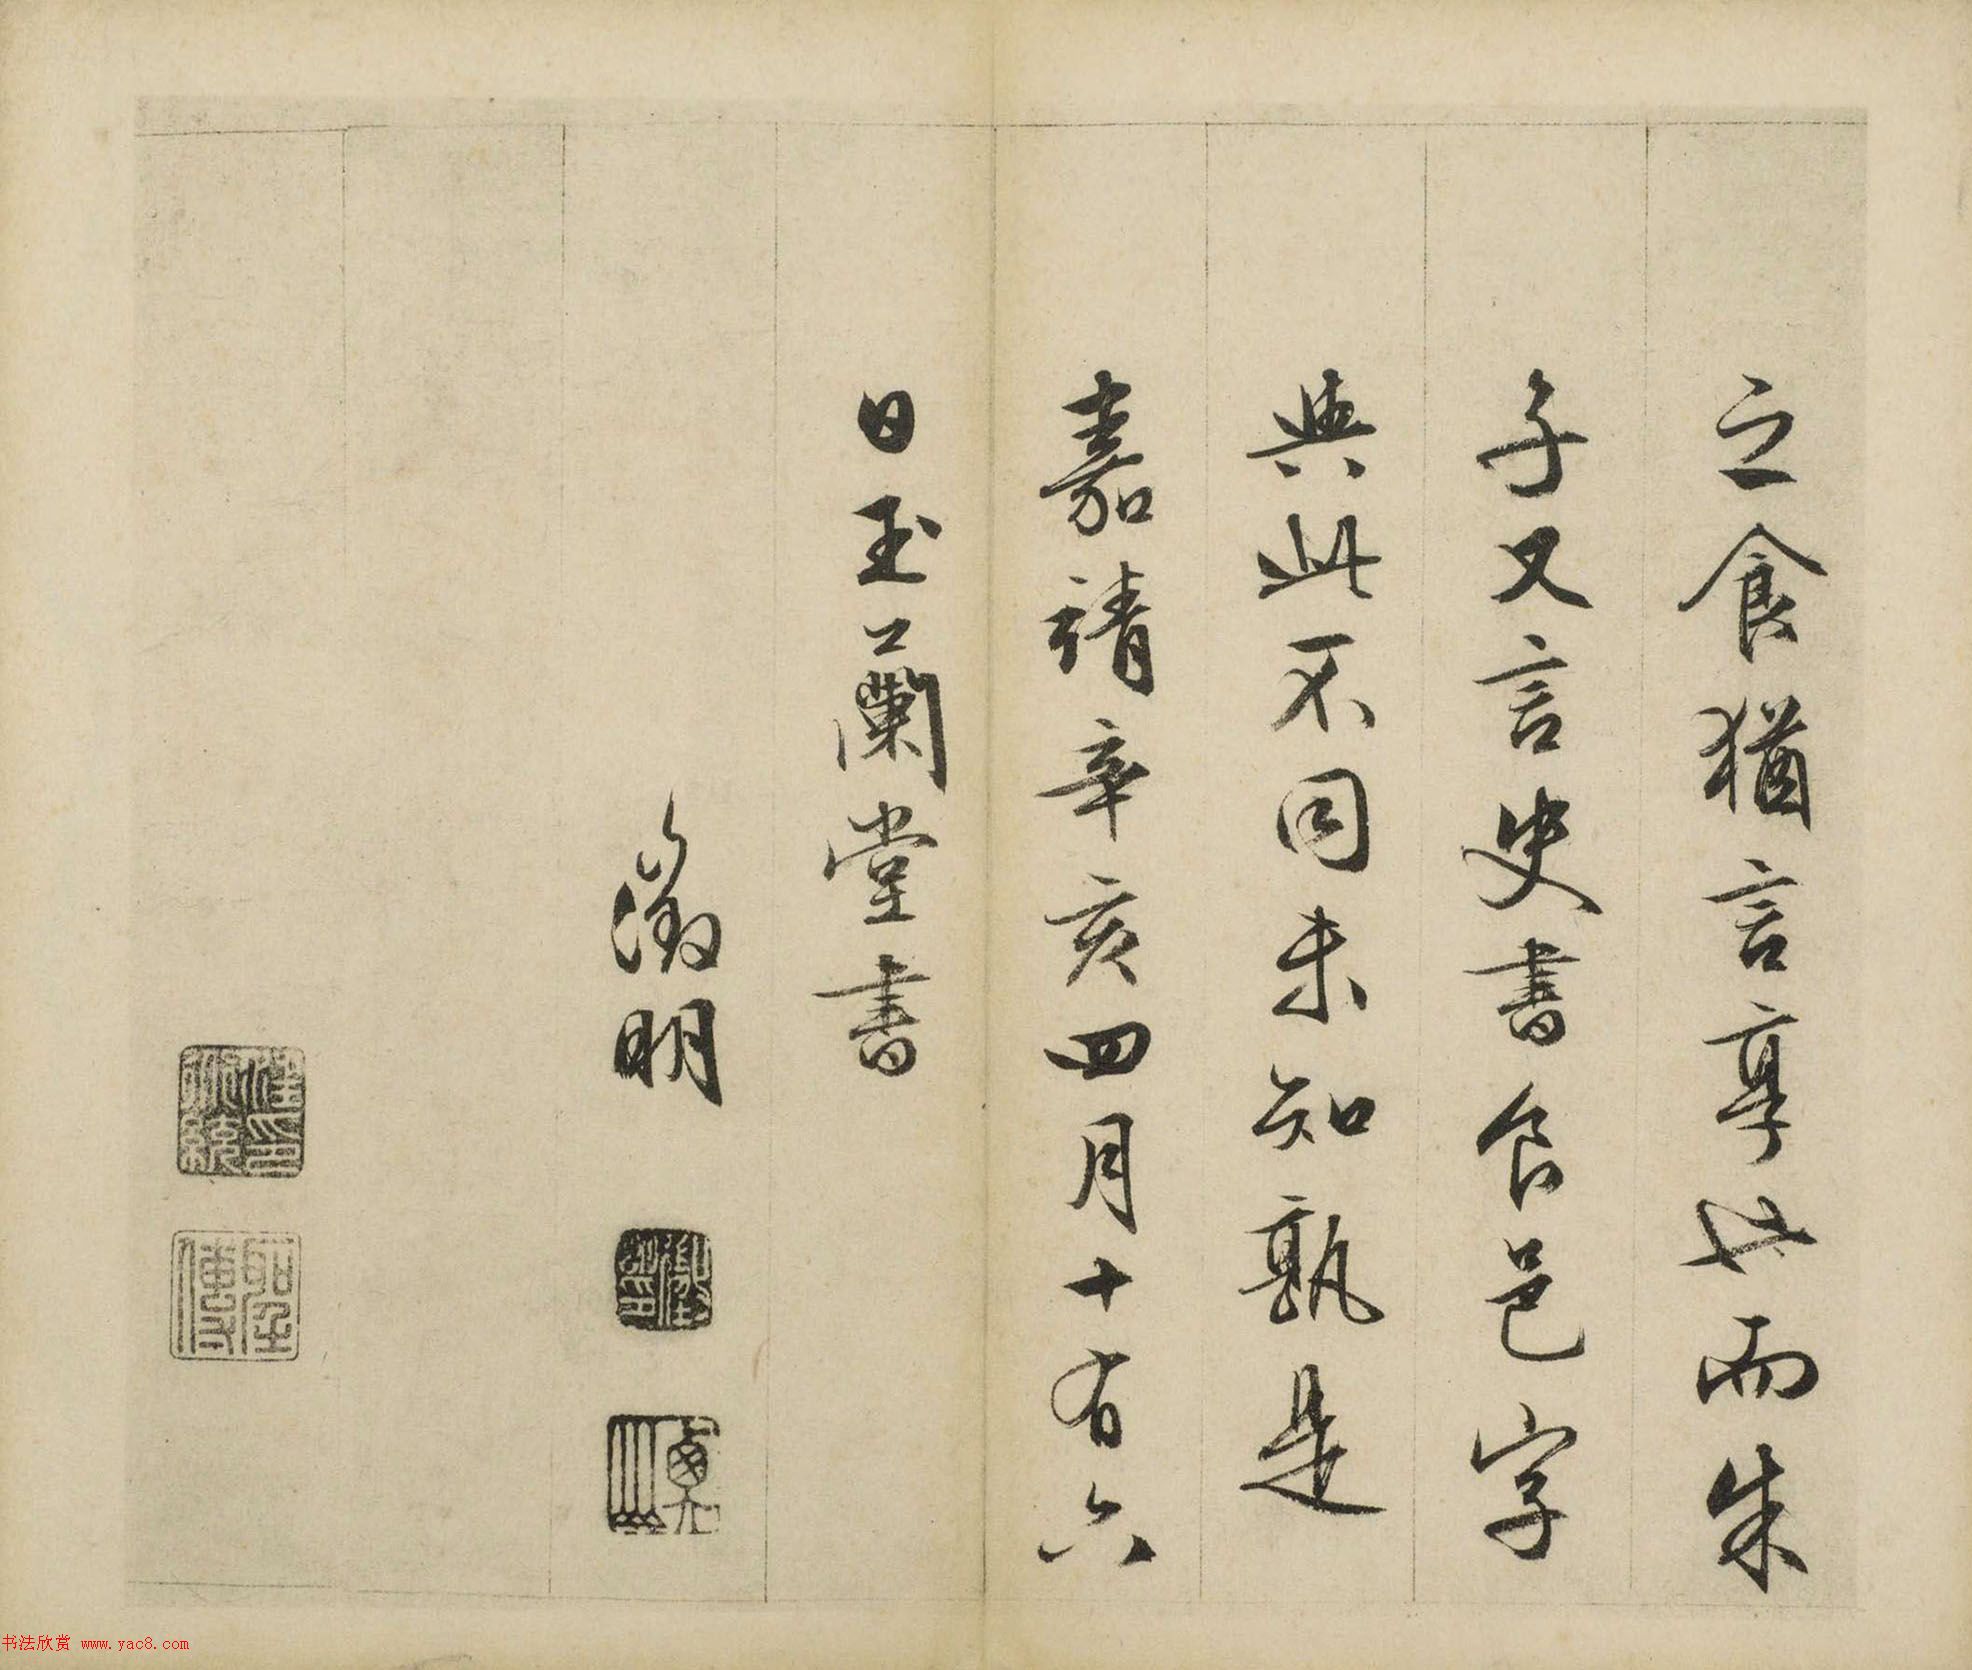 之食猶言享也而朱
子又言史書食邑字
與此不同未知孰是
嘉靖辛亥四月十有六
日玉蘭堂書
徵明
书法欣赏 www.yac8.com